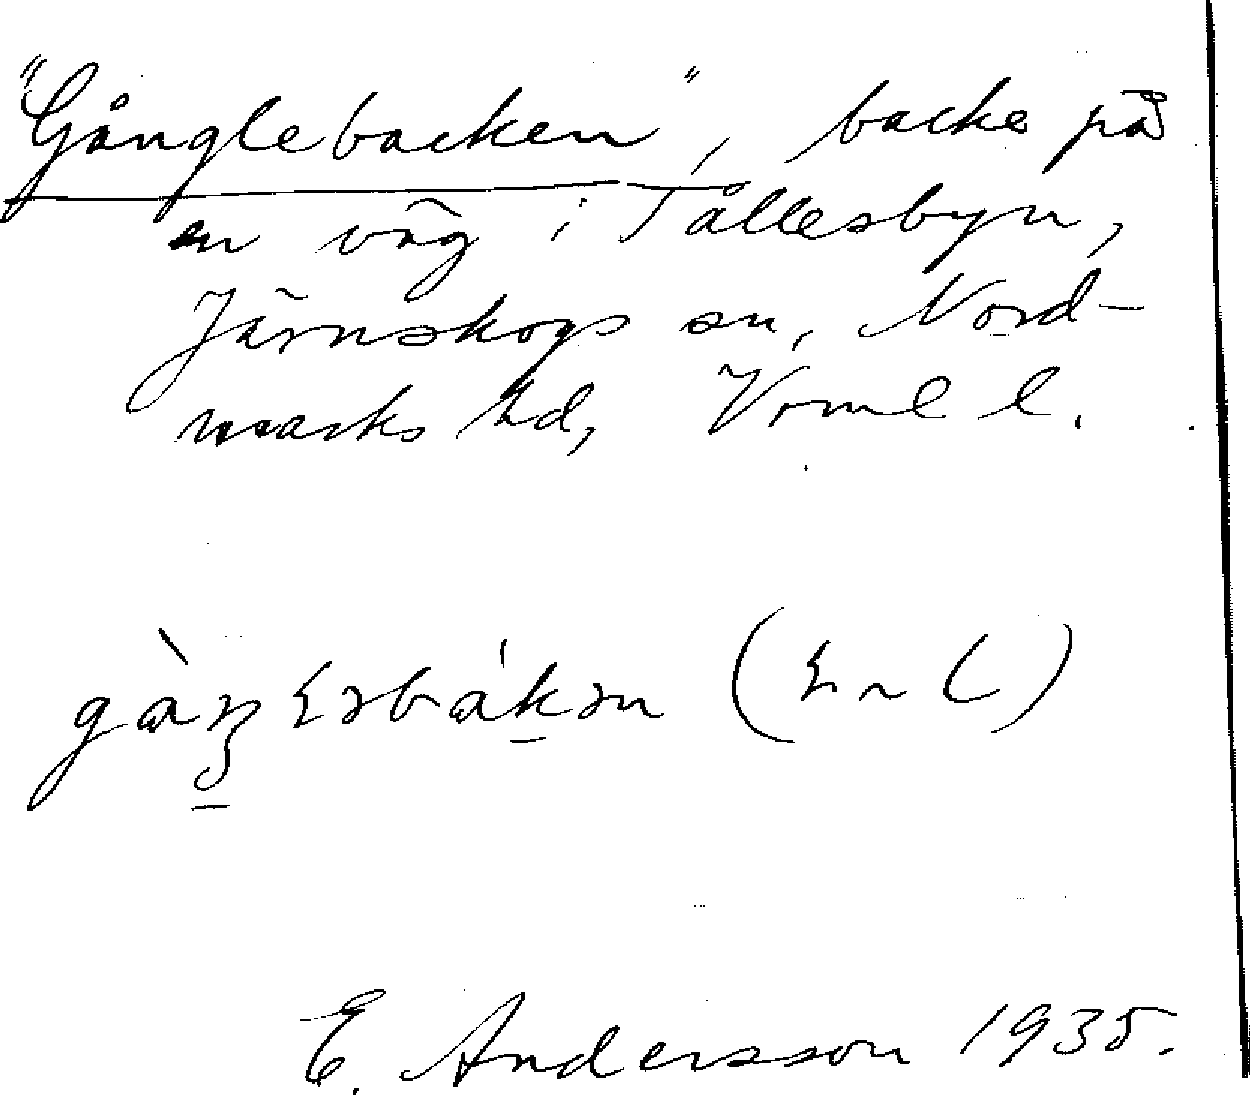 "Gånglebacken", backe på
en väg i Tållesbyn,
Järnskogs sn, Nord-
marks hd, Värml l.
E. Andersson 1935.